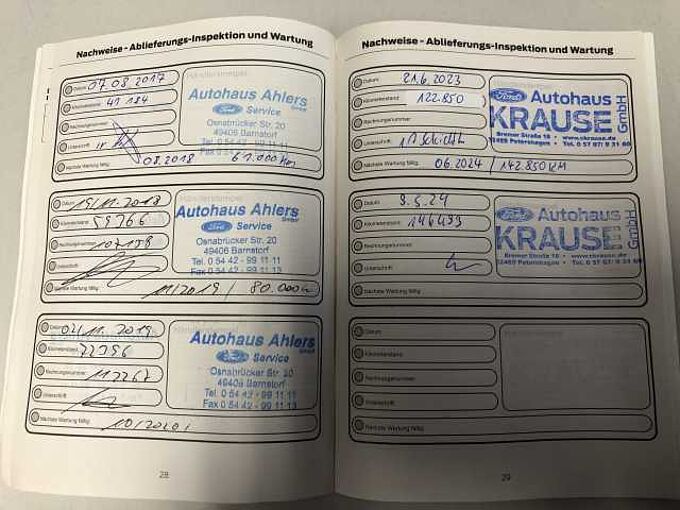 Nachweise - Ablieferungs-Inspektion und Wartung
Datum 07.08 2017
Kilometerstand 41 184
Rechnungsnummer
Unterschrift
Nächste Wartung fällig 08.2018 61.000 Km
Autohaus Ahlers GmbH
Ford Service
Osnabrücker Str. 20
49406 Barnstorf
Tel. 0 54 42 - 99 11 11
Fax 0 54 42 - 99 11 13
Datum 19/11-2018
Kilometerstand 59766
Rechnungsnummer
Unterschrift
Nächste Wartung fällig 11/2019 / 80.000
Autohaus Ahlers GmbH
Ford Service
Osnabrücker Str. 20
49406 Barnstorf
Tel. 0 54 42 - 99 11 11
Fax 0 54 42 - 99 11 13
Datum 04/11.2019
Kilometerstand 72796
Rechnungsnummer 112267
Unterschrift
Nächste Wartung fällig 10/2020
Autohaus Ahlers GmbH
Ford Service
Osnabrücker Str. 20
49406 Barnstorf
Tel. 0 54 42 - 99 11 11
Fax 0 54 42 - 99 11 13
28
Nachweise - Ablieferungs-Inspektion und Wartung
Datum 21.6.2023
Kilometerstand 122.850
Rechnungsnummer
Unterschrift
Nächste Wartung fällig 06.2024 / 142.850 KM
Ford Autohaus
KRAUSE GmbH
Bremer Straße 18 • www.ckrause.de
32469 Petershagen • Tel. 0 57 07/ 9 31 60
Datum 8.5.24
Kilometerstand 146433
Rechnungsnummer
Unterschrift
Nächste Wartung fällig
Ford Autohaus
KRAUSE GmbH
Bremer Straße 18 • www.ckrause.de
32469 Petershagen • Tel. 0 57 07/ 9 31 60
Datum
Kilometerstand
Rechnungsnummer
Unterschrift
Nächste Wartung fällig
29